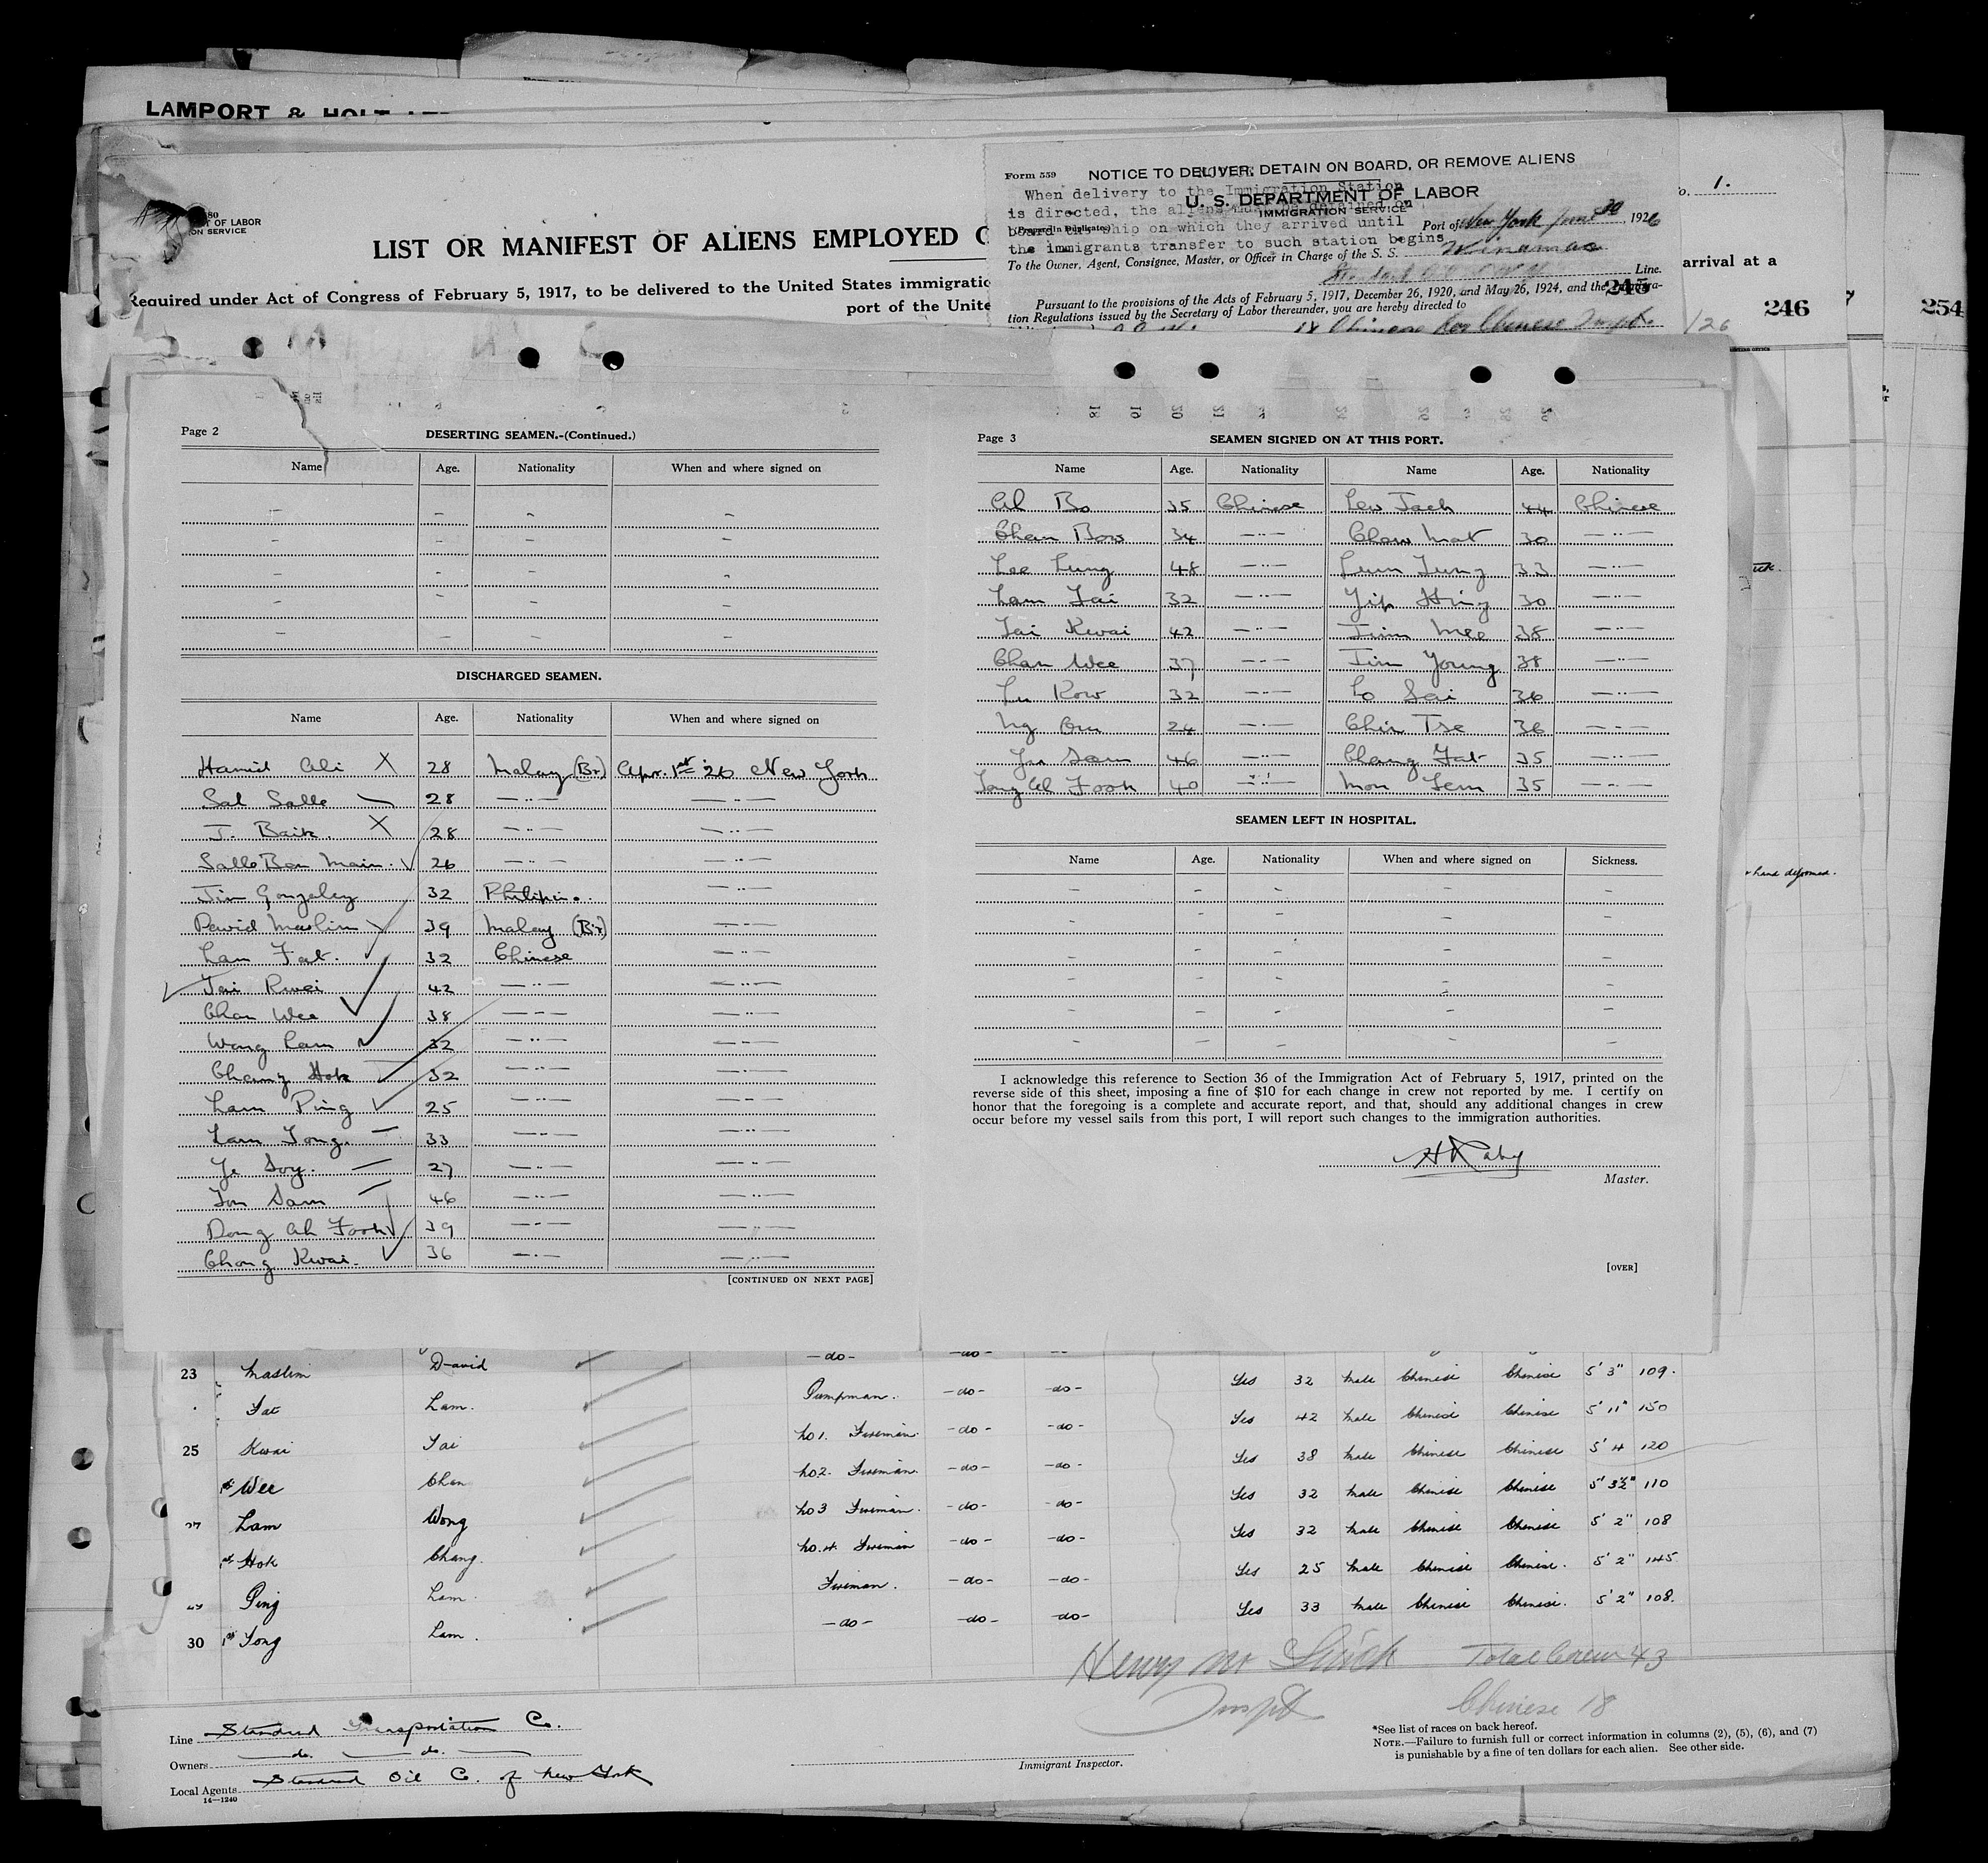 LAMPORT & HOLT
OF LABOR
ON SERVICE
LIST OR MANIFEST OF ALIENS EMPLOYED
Required under Act of Congress of February 5, 1917, to be delivered to the United States
port of the Unite
Form 559
NOTICE TO DELIVER, DETAIN ON BOARD, OR REMOVE ALIENS
When delivery to the Immigration Station
U. S. DEPARTMENT OF LABOR
is directed, the aliens must be detained on
IMMIGRATION SERVICE
board the ship on which they arrived until
Port of New York June 30, 1926
the immigrants transfer to such station begins
To the Owner, Agent, Consignee, Master, or Officer in Charge of the S. S. Winamac
Line.
245
Pursuant to the provisions of the Acts of February 5, 1917, December 26, 1920, and May 26, 1924, and the Immigra-
tion Regulations issued by the Secretary of Labor thereunder, you are hereby directed to
18 Chinese for Chinese Inspt.
1.
arrival at a
246
254
/26
hand deformed.
Page 2
DESERTING SEAMEN.-(Continued.)
Name Age. Nationality When and where signed on
DISCHARGED SEAMEN.
Name Age. Nationality When and where signed on
Hamid Ali X 28 Malay (Br) Apr. 1st 26 New York
Sal Salle 28 —"— —"—
J. Baik. X 28 —"— —"—
Salle Ben Main. 26 —"— —"—
Jim Gonzeley 32 Philipin. —"—
David Maslim 39 Malay (Br) —"—
Lam Fat. 32 Chinese —"—
Tai Kwai 42 —"— —"—
Chan Wee 38 —"— —"—
Wong Lam 32 —"— —"—
Chang Hok 32 —"— —"—
Lam Ping 25 —"— —"—
Lam Tong. 33 —"— —"—
Ye Soy. 27 —"— —"—
Yon Sam 46 —"— —"—
Dong Ah Fook 39 —"— —"—
Chong Kwai. 36 —"— —"—
[CONTINUED ON NEXT PAGE]
Page 3
SEAMEN SIGNED ON AT THIS PORT.
Name Age. Nationality Name Age. Nationality
Ah Bo 35 Chinese Lew Jack 44 Chinese
Chan Bow 34 —"— Chow Mat 30 —"—
Lee Lung 48 —"— Lum Tung 33 —"—
Lam Tai 32 —"— Yip Hing 30 —"—
Tai Kwai 42 —"— Jim Mee 38 —"—
Chan Wee 37 —"— Jim Young 38 —"—
Lu Kow 32 —"— Lo Sai 36 —"—
Ng Om 24 —"— Chin Tse 36 —"—
Yon Sam 46 —"— Chang Fat 35 —"—
Tong Ah Fook 40 —"— Mon Lem 35 —"—
SEAMEN LEFT IN HOSPITAL.
Name Age. Nationality When and where signed on Sickness.
I acknowledge this reference to Section 36 of the Immigration Act of February 5, 1917, printed on the
reverse side of this sheet, imposing a fine of $10 for each change in crew not reported by me. I certify on
honor that the foregoing is a complete and accurate report, and that, should any additional changes in crew
occur before my vessel sails from this port, I will report such changes to the immigration authorities.
Master.
[OVER]
23 Maslim David -do- -do- -do- Yes 32 Male Chinese Chinese 5' 3" 109.
Fat Lam. Pumpman. -do- -do- Yes 42 Male Chinese Chinese 5' 11" 150
25 Kwai Tai No 1. Fireman. -do- -do- Yes 38 Male Chinese Chinese 5' 4 120
Wee Chan No 2. Fireman. -do- -do- Yes 32 Male Chinese Chinese 5' 3½" 110
27 Lam Wong No 3 Fireman. -do- -do- Yes 32 Male Chinese Chinese 5' 2" 108
Hok Chang. No. 4. Fireman -do- -do- Yes 25 Male Chinese Chinese. 5' 2" 145
Ping Lam Fireman. -do- -do- Yes 33 Male Chinese Chinese. 5' 2" 108.
30 Tong Lam. -do- -do- -do-
Total Crew 43
Chinese 18
Line Standard Transportation Co.
Owners —do. —do. —
Local Agents Standard Oil Co. of New York
16—1240
Immigrant Inspector.
*See list of races on back hereof.
NOTE.—Failure to furnish full or correct information in columns (2), (5), (6), and (7)
is punishable by a fine of ten dollars for each alien. See other side.